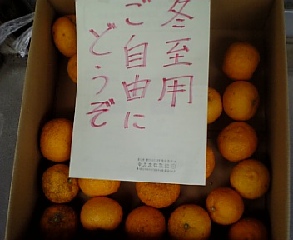 冬至用
ご自由に
どうぞ